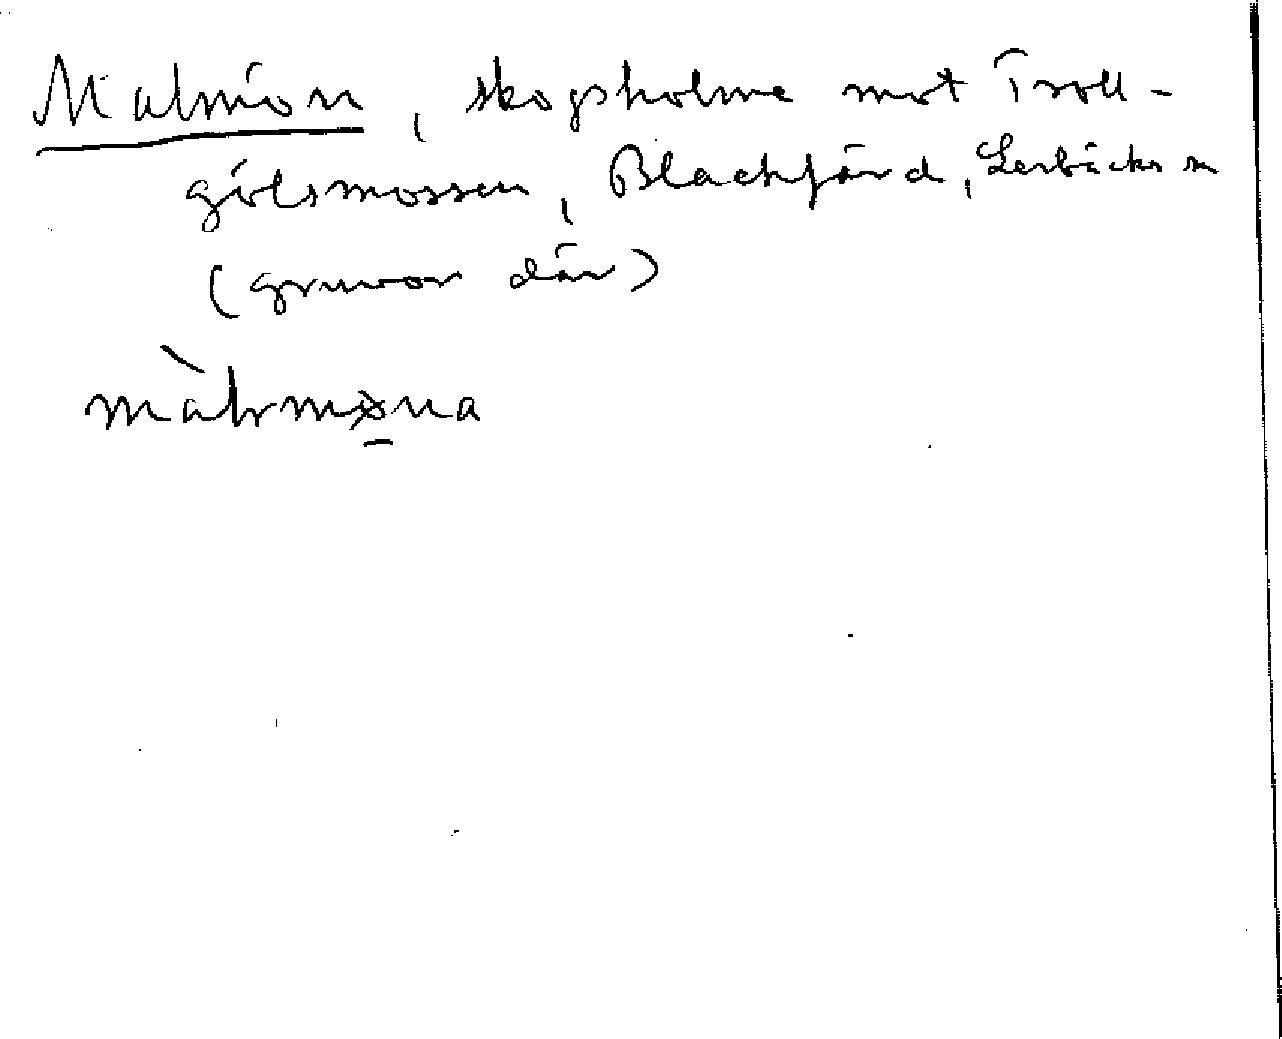 Malmön, skogsholme mot Troll-
gölsmossen, Blackfjärd, Lerbäcks sn
(gruvor där)